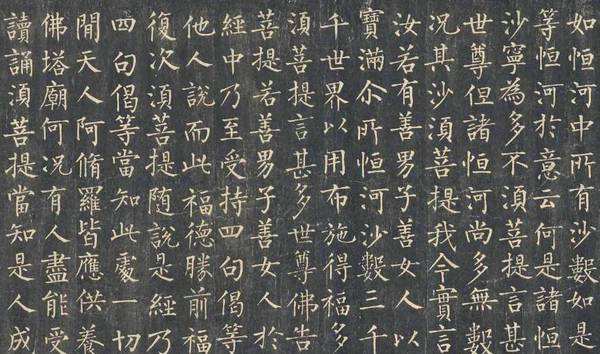 如恒河中所有沙數如是
等恒河於意云何是諸恒
沙寧為多不須菩提言甚
世尊但諸恒河尚多無數
況其沙須菩提我今實言
汝若有善男子善女人以
寶滿尒所恒河沙數三千
千世界以用布施得福多
須菩提言甚多世尊佛告
菩提若善男子善女人於
經中乃至受持四句偈等
他人說而此福德勝前福
復次須菩提隨說是經乃
四句偈等當知此處一切
間天人阿脩羅皆應供養
佛塔廟何況有人盡能受
讀誦須菩提當知是人成